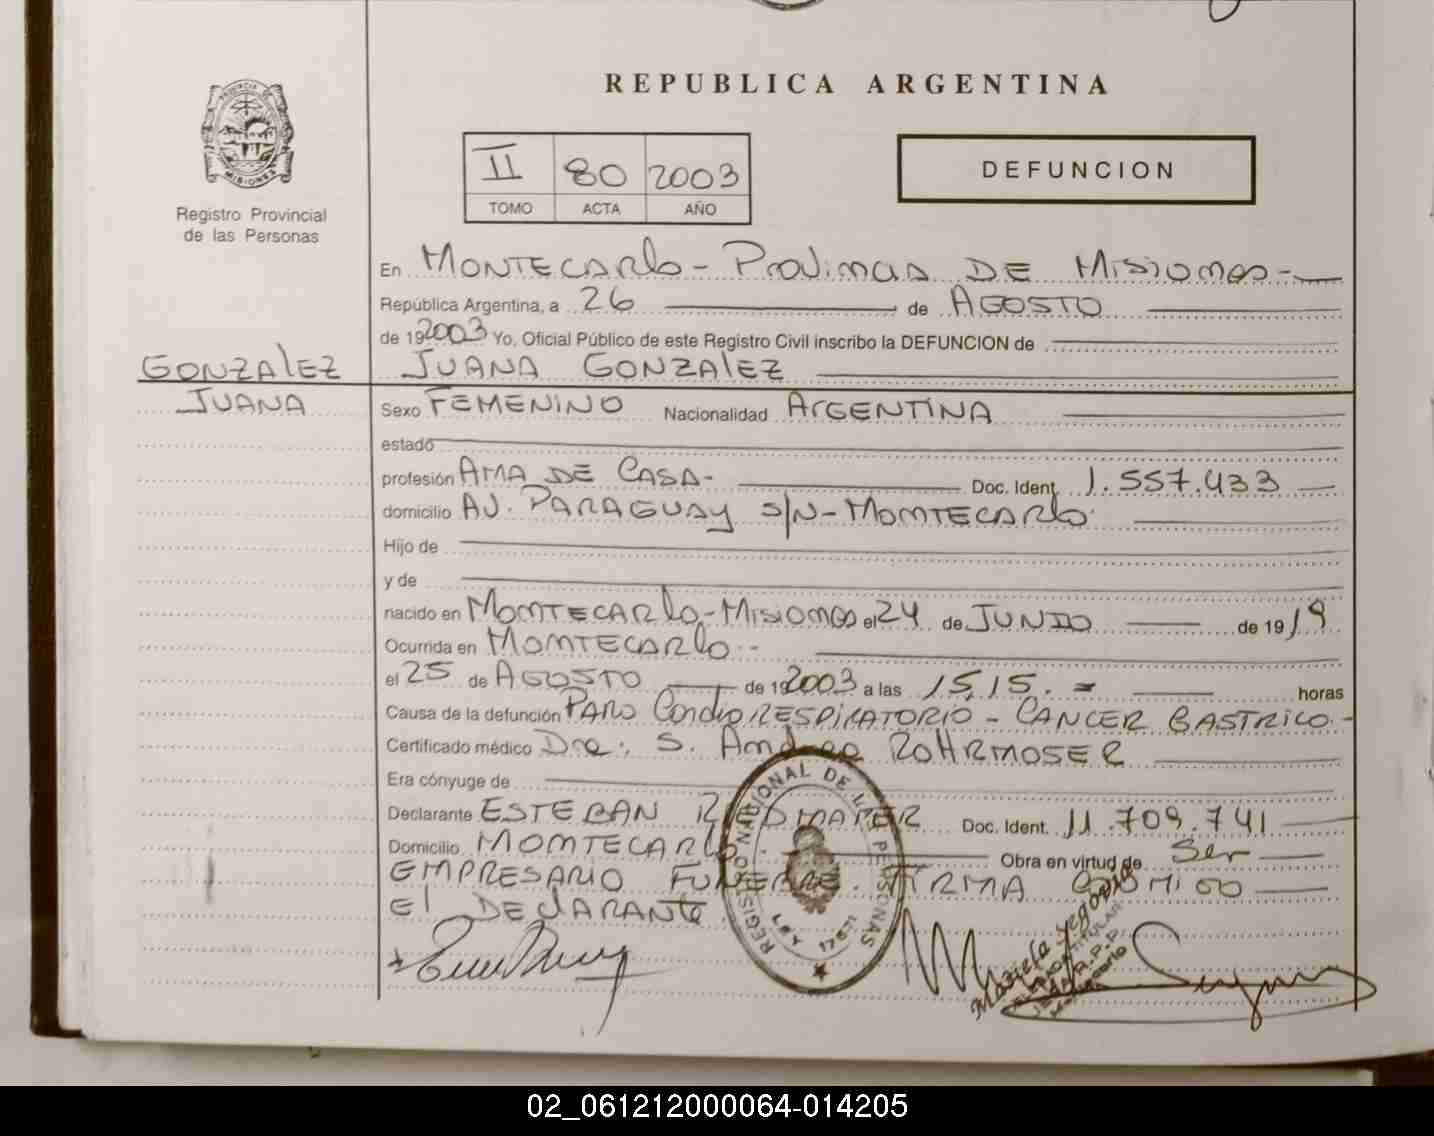 REPUBLICA ARGENTINA
PROVINCIA DE
MISIONES
Registro Provincial
de las Personas
II 80 2003
TOMO ACTA AÑO
DEFUNCION
En MONTECARLO - PROVINCIA DE MISIONES -
República Argentina, a 26 de AGOSTO
de 19 2003 Yo, Oficial Público de este Registro Civil inscribo la DEFUNCION de
GONZALEZ JUANA GONZALEZ
JUANA
Sexo FEMENINO Nacionalidad ARGENTINA
estado
profesión AMA DE CASA- Doc. Ident. 1.557.433
domicilio AV. PARAGUAY S/N - MONTECARLO
Hijo de
y de
nacido en MONTECARLO - MISIONES el 24 de JUNIO de 19 19
Ocurrida en MONTECARLO --
el 25 de AGOSTO de 19 2003 a las 15,15. = horas
Causa de la defunción PARO CARDIO RESPIRATORIO - CANCER GASTRICO.-
Certificado médico Dra: S. Andrea ROHRMOSER
Era cónyuge de
Declarante ESTEBAN Doc. Ident. 11.709.741
Domicilio MONTECARLO - Obra en virtud de Ser
EMPRESARIO FUNEBRE. FIRMA CONMIGO
El DECLARANTE
REGISTRO NACIONAL DE LAS PERSONAS
LEY 17671
02_061212000064-014205